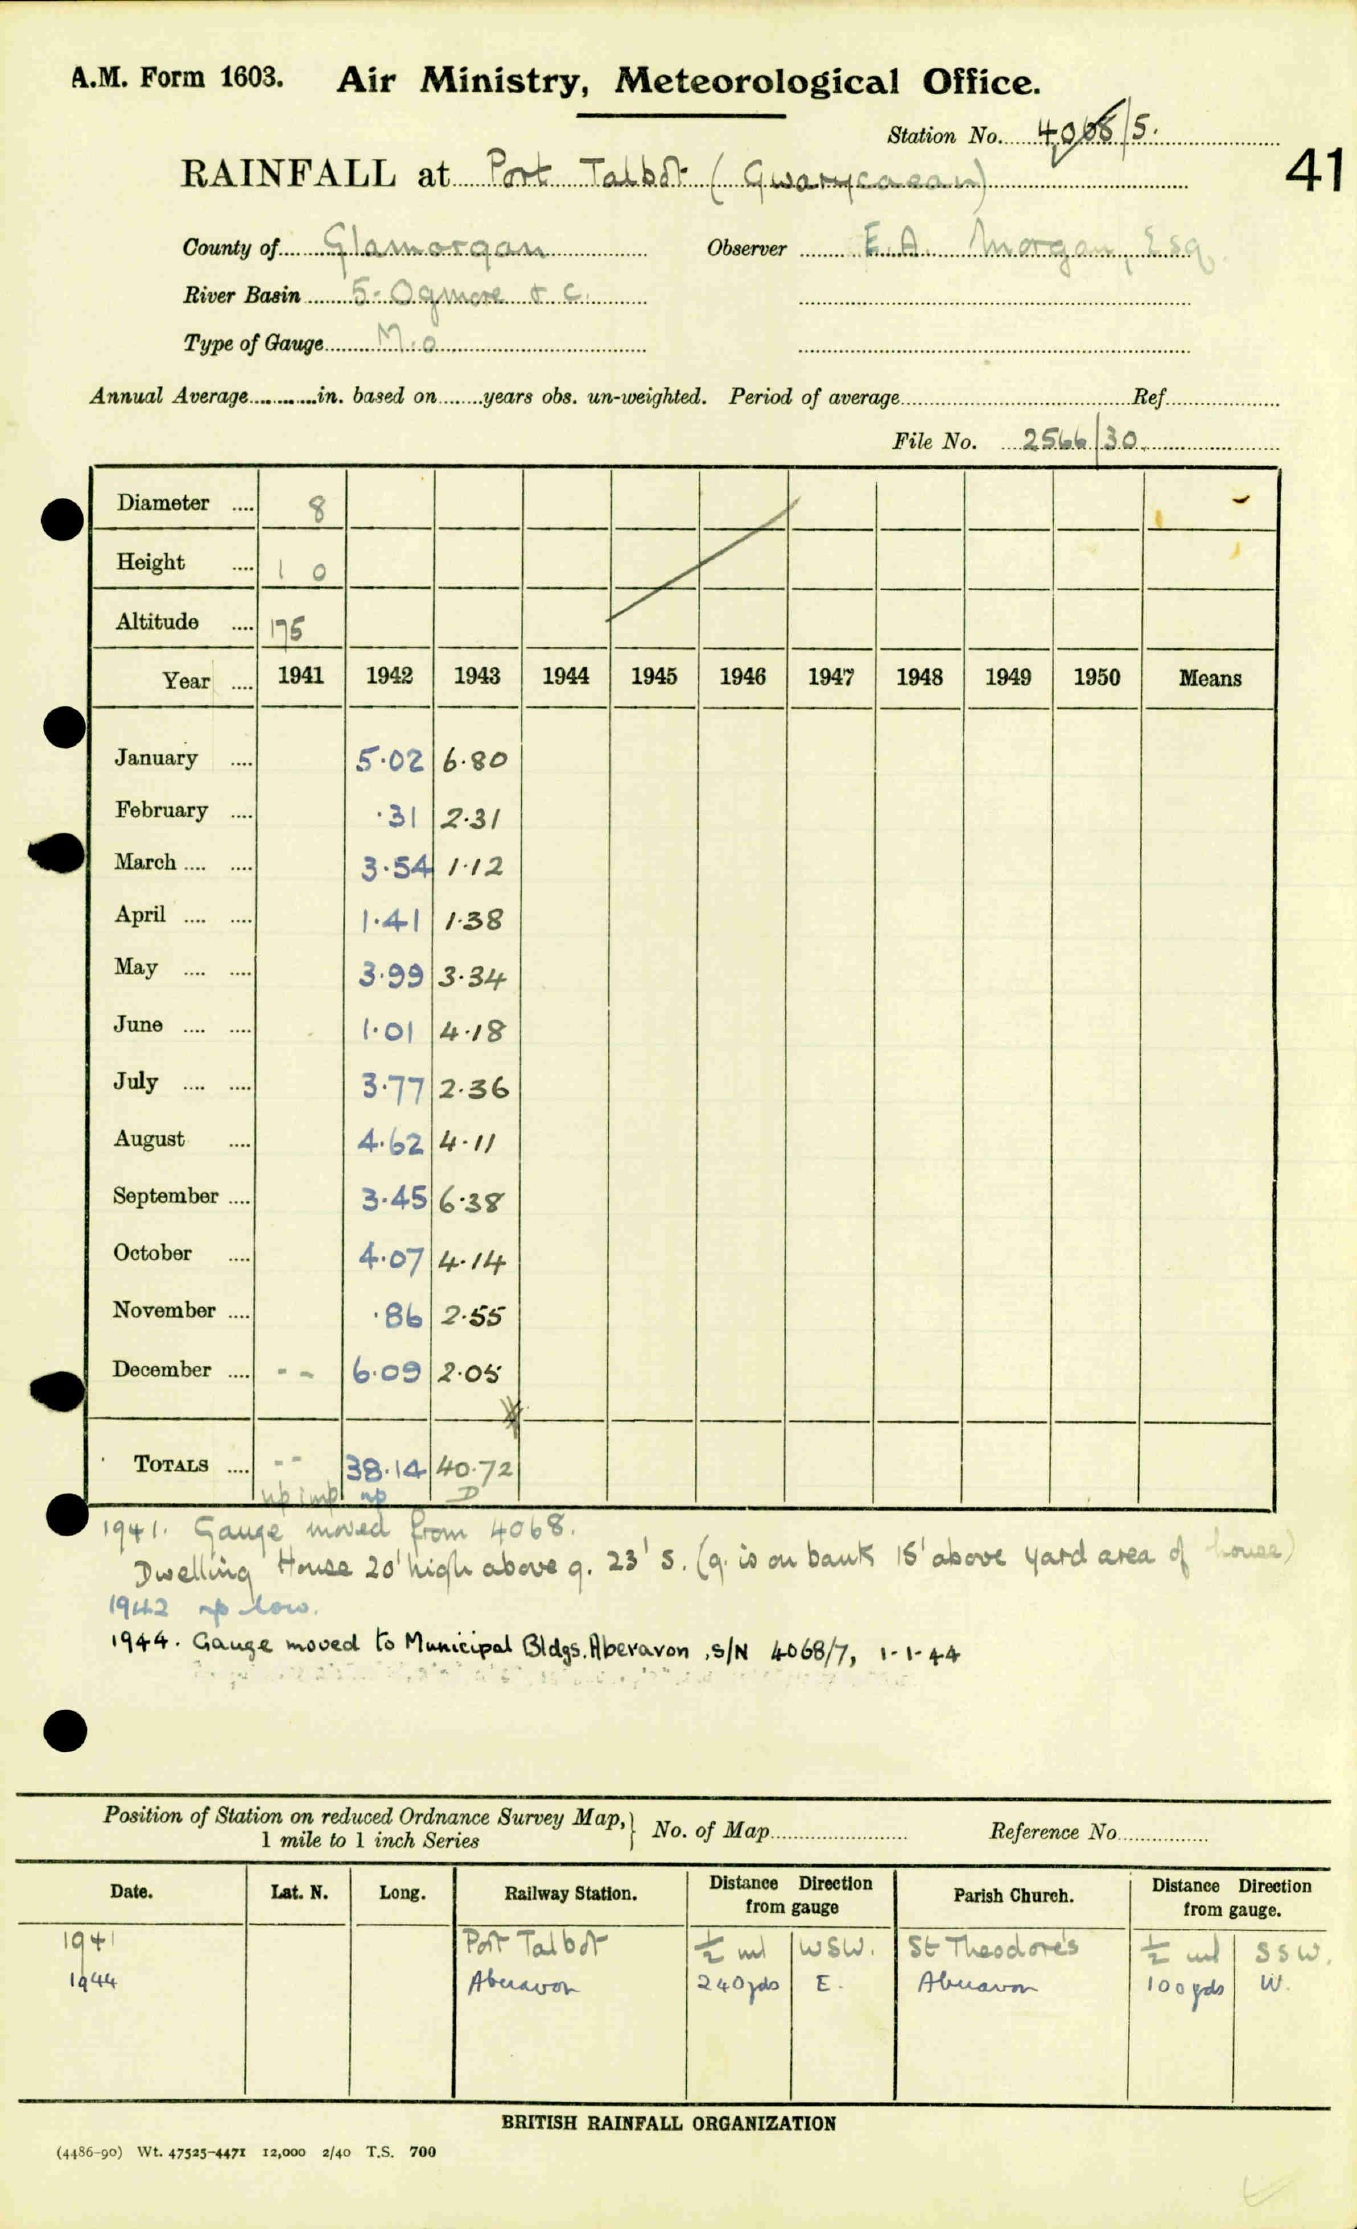 A.M. Form 1603. Air Ministry, Meteorological Office.
Station No. 4068/5.
41
RAINFALL at Port Talbot (Gwarycaeau)
County of Glamorgan Observer E.A. Morgan, Esq.
River Basin 5-Ogmore & c.
Type of Gauge M.O
Annual Average in. based on years obs. un-weighted. Period of average Ref
File No. 2566/30
Diameter .... 8
Height .... 1 0
Altitude .... 175
Year .... 1941 1942 1943 1944 1945 1946 1947 1948 1949 1950 Means
January .... 5.02 6.80
February .... .31 2.31
March .... .... 3.54 1.12
April .... .... 1.41 1.38
May .... .... 3.99 3.34
June .... .... 1.01 4.18
July .... .... 3.77 2.36
August .... 4.62 4.11
September .... 3.45 6.38
October .... 4.07 4.14
November .... .86 2.55
December .... - - 6.09 2.05
TOTALS .... - - 38.14 40.72
np imp np D
1941. Gauge moved from 4068.
Dwelling House 20' high above g. 23' S. (g. is on bank 15' above yard area of house)
1942 np low.
1944. Gauge moved to Municipal Bldgs. Aberavon, S/N 4068/7, 1-1-44
Position of Station on reduced Ordnance Survey Map,} No. of Map Reference No
1 mile to 1 inch Series
Date. Lat. N. Long. Railway Station. Distance Direction from gauge Parish Church. Distance Direction from gauge.
1941 Port Talbot ½ ml WSW. St Theodore's ½ ml SSW.
1944 Aberavon 240yds E. Aberavon 100yds W.
BRITISH RAINFALL ORGANIZATION
(4486-90) Wt. 47525-4471 12,000 2/40 T.S. 700